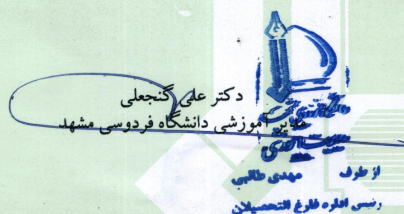 دکتر علی گنجعلی
مدیر آموزشی دانشگاه فردوسی مشهد
از طرف مهدی طالبی
رئیس اداره فارغ التحصیلان